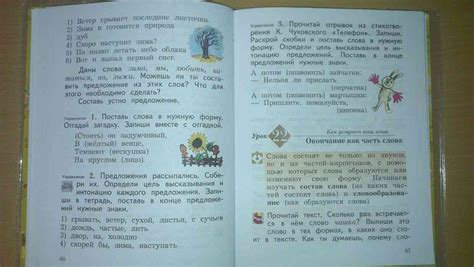 1) Ветер срывает последние листочки.
2) Зима к готовится природа
3) дуб
4) Скоро наступит зима?
5) По низко летать небо облака
6) Вот и выпал первый снег.
Даны слова зима, мы, любить, ка-
таться, на, лыжи. Можешь ли ты соста-
вить предложение из этих слов? Что для
этого необходимо сделать?
Составь устно предложение.
Упражнение 1. Поставь слова в нужную форму.
Отгадай загадку. Запиши вместе с отгадкой.
(Стоять) он задумчивый,
В (жёлтый) венце,
Темнеют (веснушка)
На круглом (лицо).
Упражнение 2. Предложения рассыпались. Собе-
ри их. Определи цель высказывания и
интонацию каждого предложения. Запи-
ши в тетрадь, поставь в конце предложе-
ний нужные знаки.
1) срывать, ветер, сухой, листья, с сучьев
2) дождь, частые, лить
3) двор, на, холодно
4) скорей бы, зима, наступать
66
Упражнение 3. Прочитай отрывок из стихотво-
рения К. Чуковского «Телефон». Запиши.
Раскрой скобки и поставь слова в нужную
форму. Определи цель высказывания и
интонацию предложений. Поставь в конце
предложений нужные знаки.
А потом (позвонить) зайчатки:
— Нельзя ли прислать
(перчатки)
А потом (позвонить) мартышки:
— Пришлите, пожалуйста,
(книжки)
Урок 22
Как устроен наш язык
Окончание как часть слова
Слова состоят не только из звуков,
но и из частей-кирпичиков, с помо-
щью которых слова образуются или
изменяют свою форму. Начинаем
изучать состав слова (из каких час-
тей состоят слова) и словообразова-
ние (как образуются слова).
Прочитай текст. Сколько раз встречает-
ся в нём слово мышка? Выпиши это
слово в тех формах, в каких оно сто-
ит в тексте. Как ты думаешь, почему сло-
67